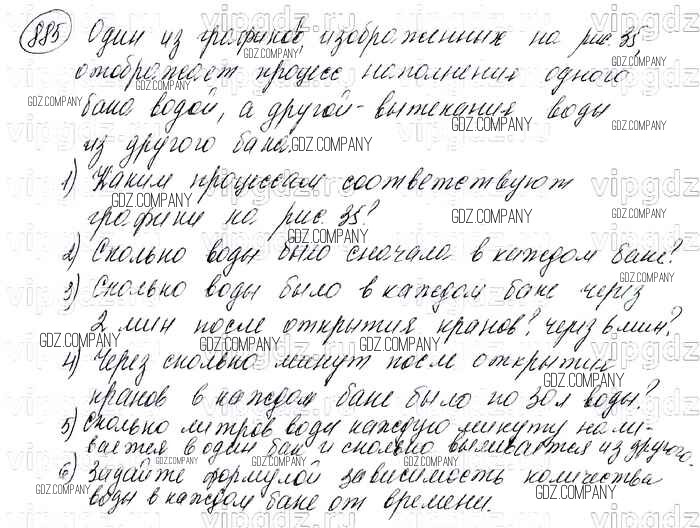 885 Один из графиков, изображенных на рис. 35
отображает процесс наполнения одного
бака водой, а другой - вытекания воды
из другого бака.
1) Каким процессам соответствуют
графики на рис. 35?
2) Сколько воды было сначала в каждом баке?
3) Сколько воды было в каждом баке через
2 мин после открытия кранов? через 6 мин?
4) Через сколько минут после открытия
кранов в каждом баке было по 30 л воды?
5) Сколько литров воды каждую минуту нали-
вается в один бак и сколько выливается из другого.
6) Задайте формулой зависимость количества
воды в каждом баке от времени.